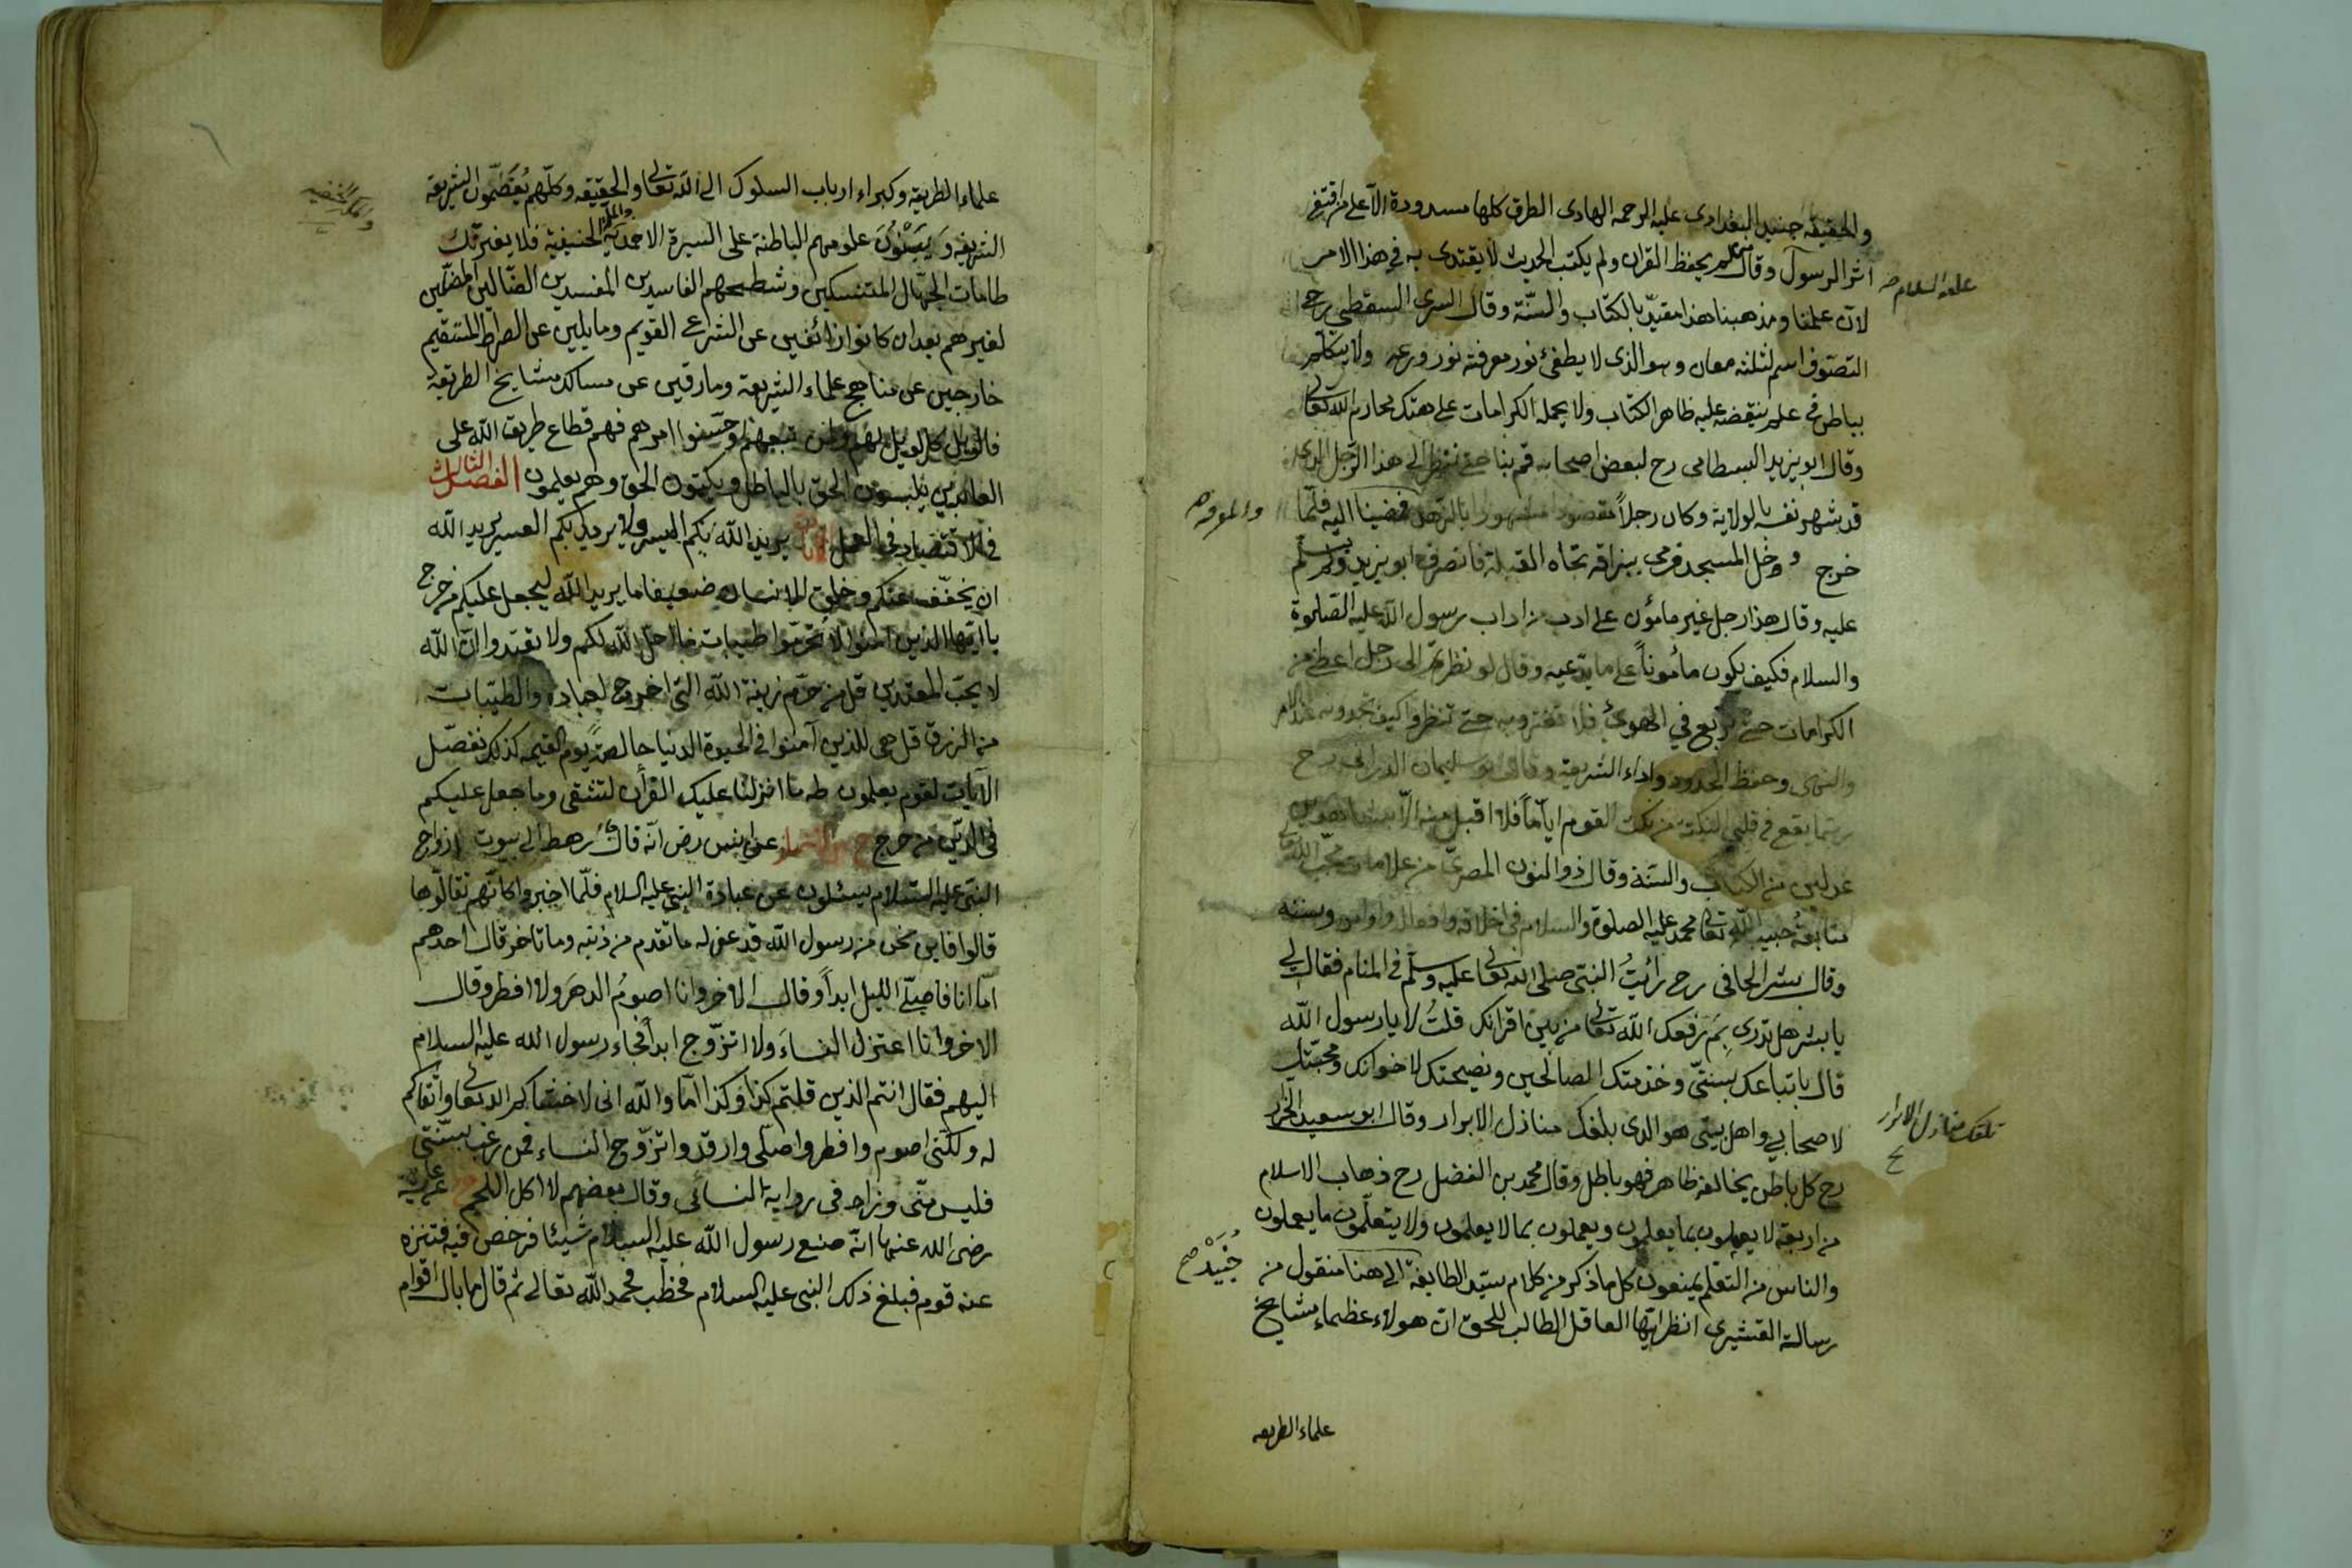 والحقيقة جنيد البغدادى عليه الرحمه الهادى الطرق كلها مسدودة الا على من اقتفى
اثر الرسول وقال من لم يحفظ القران ولم يكتب الحديث لا يقتدى به فى هذا الامر
عليه السلام صح
لان علمنا ومذهبنا هذا مقيد بالكتاب والسنّة وقال السرى السقطى رح
التصوف اسم لثلثة معان وهو الذى لا يطفئ نور معرفته نور ورعه ولا يتكلم
بباطن فى علم ينقضه عليه ظاهر الكتاب ولا يحمله الكرامات على هتك محارم الله تعالى
وقال ابو يزيد البسطامى رح لبعض اصحابه قم بنا حتى ننظر الى هذا الرجل الذى
قد شهر نفسه بالولاية وكان رجلاً مقصودا مشهورا بالزهد فمضينا اليه فلمّا
خرج ودخل المسجد فرمى ببزاقه تجاه القبلة فانصرف ابو يزيد ولم يسلّم
عليه وقال هذا رجل غير مأمون على ادب من اداب رسول الله عليه الصلوة
والسلام فكيف يكون مأموناً على ما يدّعيه وقال لو نظرتم الى رجل اعطى من
الكرامات حتى تربع في الهوئ فلا تغتروا به حتى تنظروا كيف تجدونه عند الامر
والنهى وحفظ الحدود واداء الشريعة وقال ابو سليمان الدارانى رح
ربما يقع فى قلبى النكتة من نكت القوم ايّاماً فلا اقبل منه الّا بشاهدين
عدلين من الكتاب والسنة وقال ذو النون المصرىّ من علامات محب الله تعالى
متابعة حبيب الله تعالى محمد عليه الصلوة والسلام فى اخلاقه وافعاله واوامره وسننه
وقال بشر الحافى رح رأيتُ النبى صلى الله تعالى عليه وسلّم فى المنام فقال لى
يا بشر هل تدرى بِمَ رفعك الله تعالى من بين اقرانك قلتُ لا يا رسول الله
قال باتباعك بسنتى وخدمتك الصالحين ونصيحتك لاخوانك ومحبّتك
لاصحابى واهل بيتى هو الذى بلغك منازل الابرار وقال ابو سعيد الخراز
رح كل باطن يخالفه ظاهر فهو باطل وقال محمد بن الفضل رح ذهاب الاسلام
من اربعة لا يعملون بما يعلمون ويعملون بما لا يعلمون ولا يتعلّمون ما يعملون
والناس من التعلم يمنعون كل ما ذكر من كلام سيّد الطايفة الى هنا منقول من
جُنَيْد صح
رسالة القشيرى انظر ايها العاقل الطالب للحق ان هولاء عظماء مشايخ
علماء الطريقه
علماء الطريقة وكبراء ارباب السلوك الى الله تعالى والحقيقه وكلّهم يُعَظّمون الشريعة
الشريفة وَيَبْنُونَ علومهم الباطنة على السيرة الاحمدية والملة الحنيفية فلا يغرّنّك
طامات الجهّال المتنسكين وشطحهم الفاسدين المفسدين الضّالين المضلّين
لغيرهم بعد ان كانوا زائغين عن الشرع القويم ومايلين عن الصراط المستقيم
خارجين عن مناهج علماء الشريعة ومارقين عن مسالك مشايخ الطريقة
فالويل كل الويل لهم ولمن تبعهم وحسّنوا امرهم فهم قطاع طريق الله على
العابدين يلبسون الحق بالباطل ويكتمون الحق وهم يعلمون الفصل الثالث
فى الاقتصاد فى العمل يريد الله بكم اليسر ولا يريد بكم العسر يريد الله
ان يخفّف عنكم وخلق الانسان ضعيفا ما يريد الله ليجعل عليكم من حرج
يا ايّها الذين امنوا لا تحرّموا طيبات ما احل الله لكم ولا تعتدوا ان الله
لا يحبّ المعتدين قل من حرّم زينة الله التى اخرج لعباده والطيّبات
من الرزق قل هى للذين آمنوا فى الحيوة الدنيا خالصةً يوم القيمه كذلك نفصّل
الآيات لقوم يعلمون طه ما انزلنا عليك القرأن لتشقى وما جعل عليكم
فى الدّين من حرج عن انس رض انّه قال جاء رهط الى بيوت ازواج
النبى عليه السلام يسئلون عن عبادة النبى عليه السلام فلمّا اخبروا كانّهم تقالّوها
قالوا فاين نحن من رسول الله قد غفر له ما تقدم من ذنبه وما تاخر قال احدهم
امّا انا فاصلّى الليل ابداً وقال الاخر وانا اصومُ الدهرَ ولا افطر وقال
الاخر وانا اعتزل النساءَ ولا اتزّوج ابداً فجاء رسول الله عليه السلام
اليهم فقال انتم الذين قلتم كذا وكذا امّا والله انى لاخشاكم الله تعالى واتّقاكم
له ولكنّى اصوم وافطر واصلّى وارقد واتزّوج النساء فمن رغب بسنّتى
فليس منّى وزاد فى رواية النسائى وقال بعضهم لا اكل اللحم عن عايشة
رضى الله عنها انّه صنع رسول الله عليه السلام شيئا فرخص فيه فتنزه
عنه قوم فبلغ ذلك النبى عليه السلام فخطب فحمد الله تعالى ثم قال ما بال اقوام